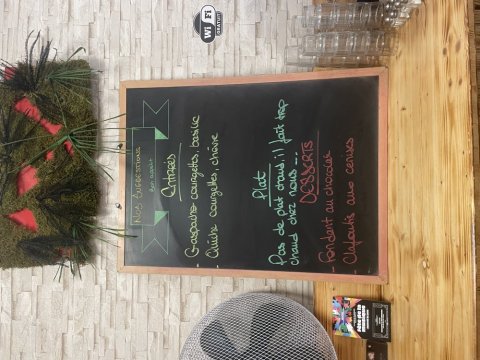 WiFi
GRATUIT
Nos Suggestions
Entrées
- Gaspacho courgettes, basilic
- Quiche courgettes, chèvre
Plat
Pas de plat chaud, il fait trop
chaud chez nous ...
DESSERTS
- Fondant au chocolat
- Clafoutis aux cerises
fête de la
musique